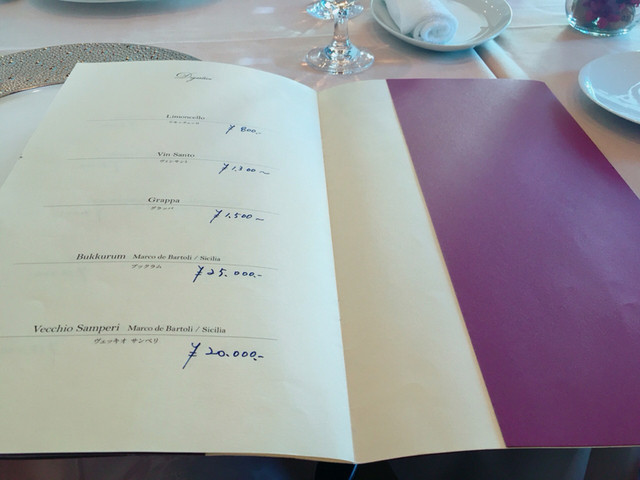 Digestivo
Limoncello
リモンチェッロ
¥800.-
Vin Santo
ヴィンサント
¥1.300～
Grappa
グラッパ
¥1.500～
Bukkurum Marco de Bartoli / Sicilia
ブックラム
¥25.000.-
Vecchio Samperi Marco de Bartoli / Sicilia
ヴェッキオ サンペリ
¥20.000.-